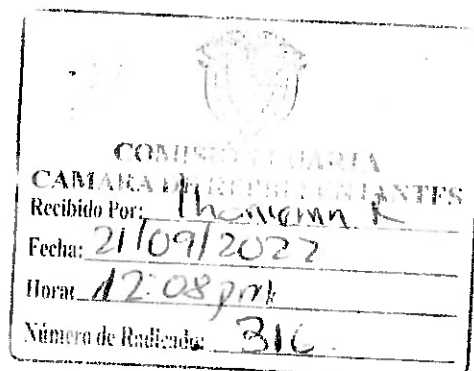 COMISIÓN
CAMARA DE REPRESENTANTES
Recibido Por:
Fecha: 21/09/2022
Hora: 12:08 pm
Número de Radicado: 316